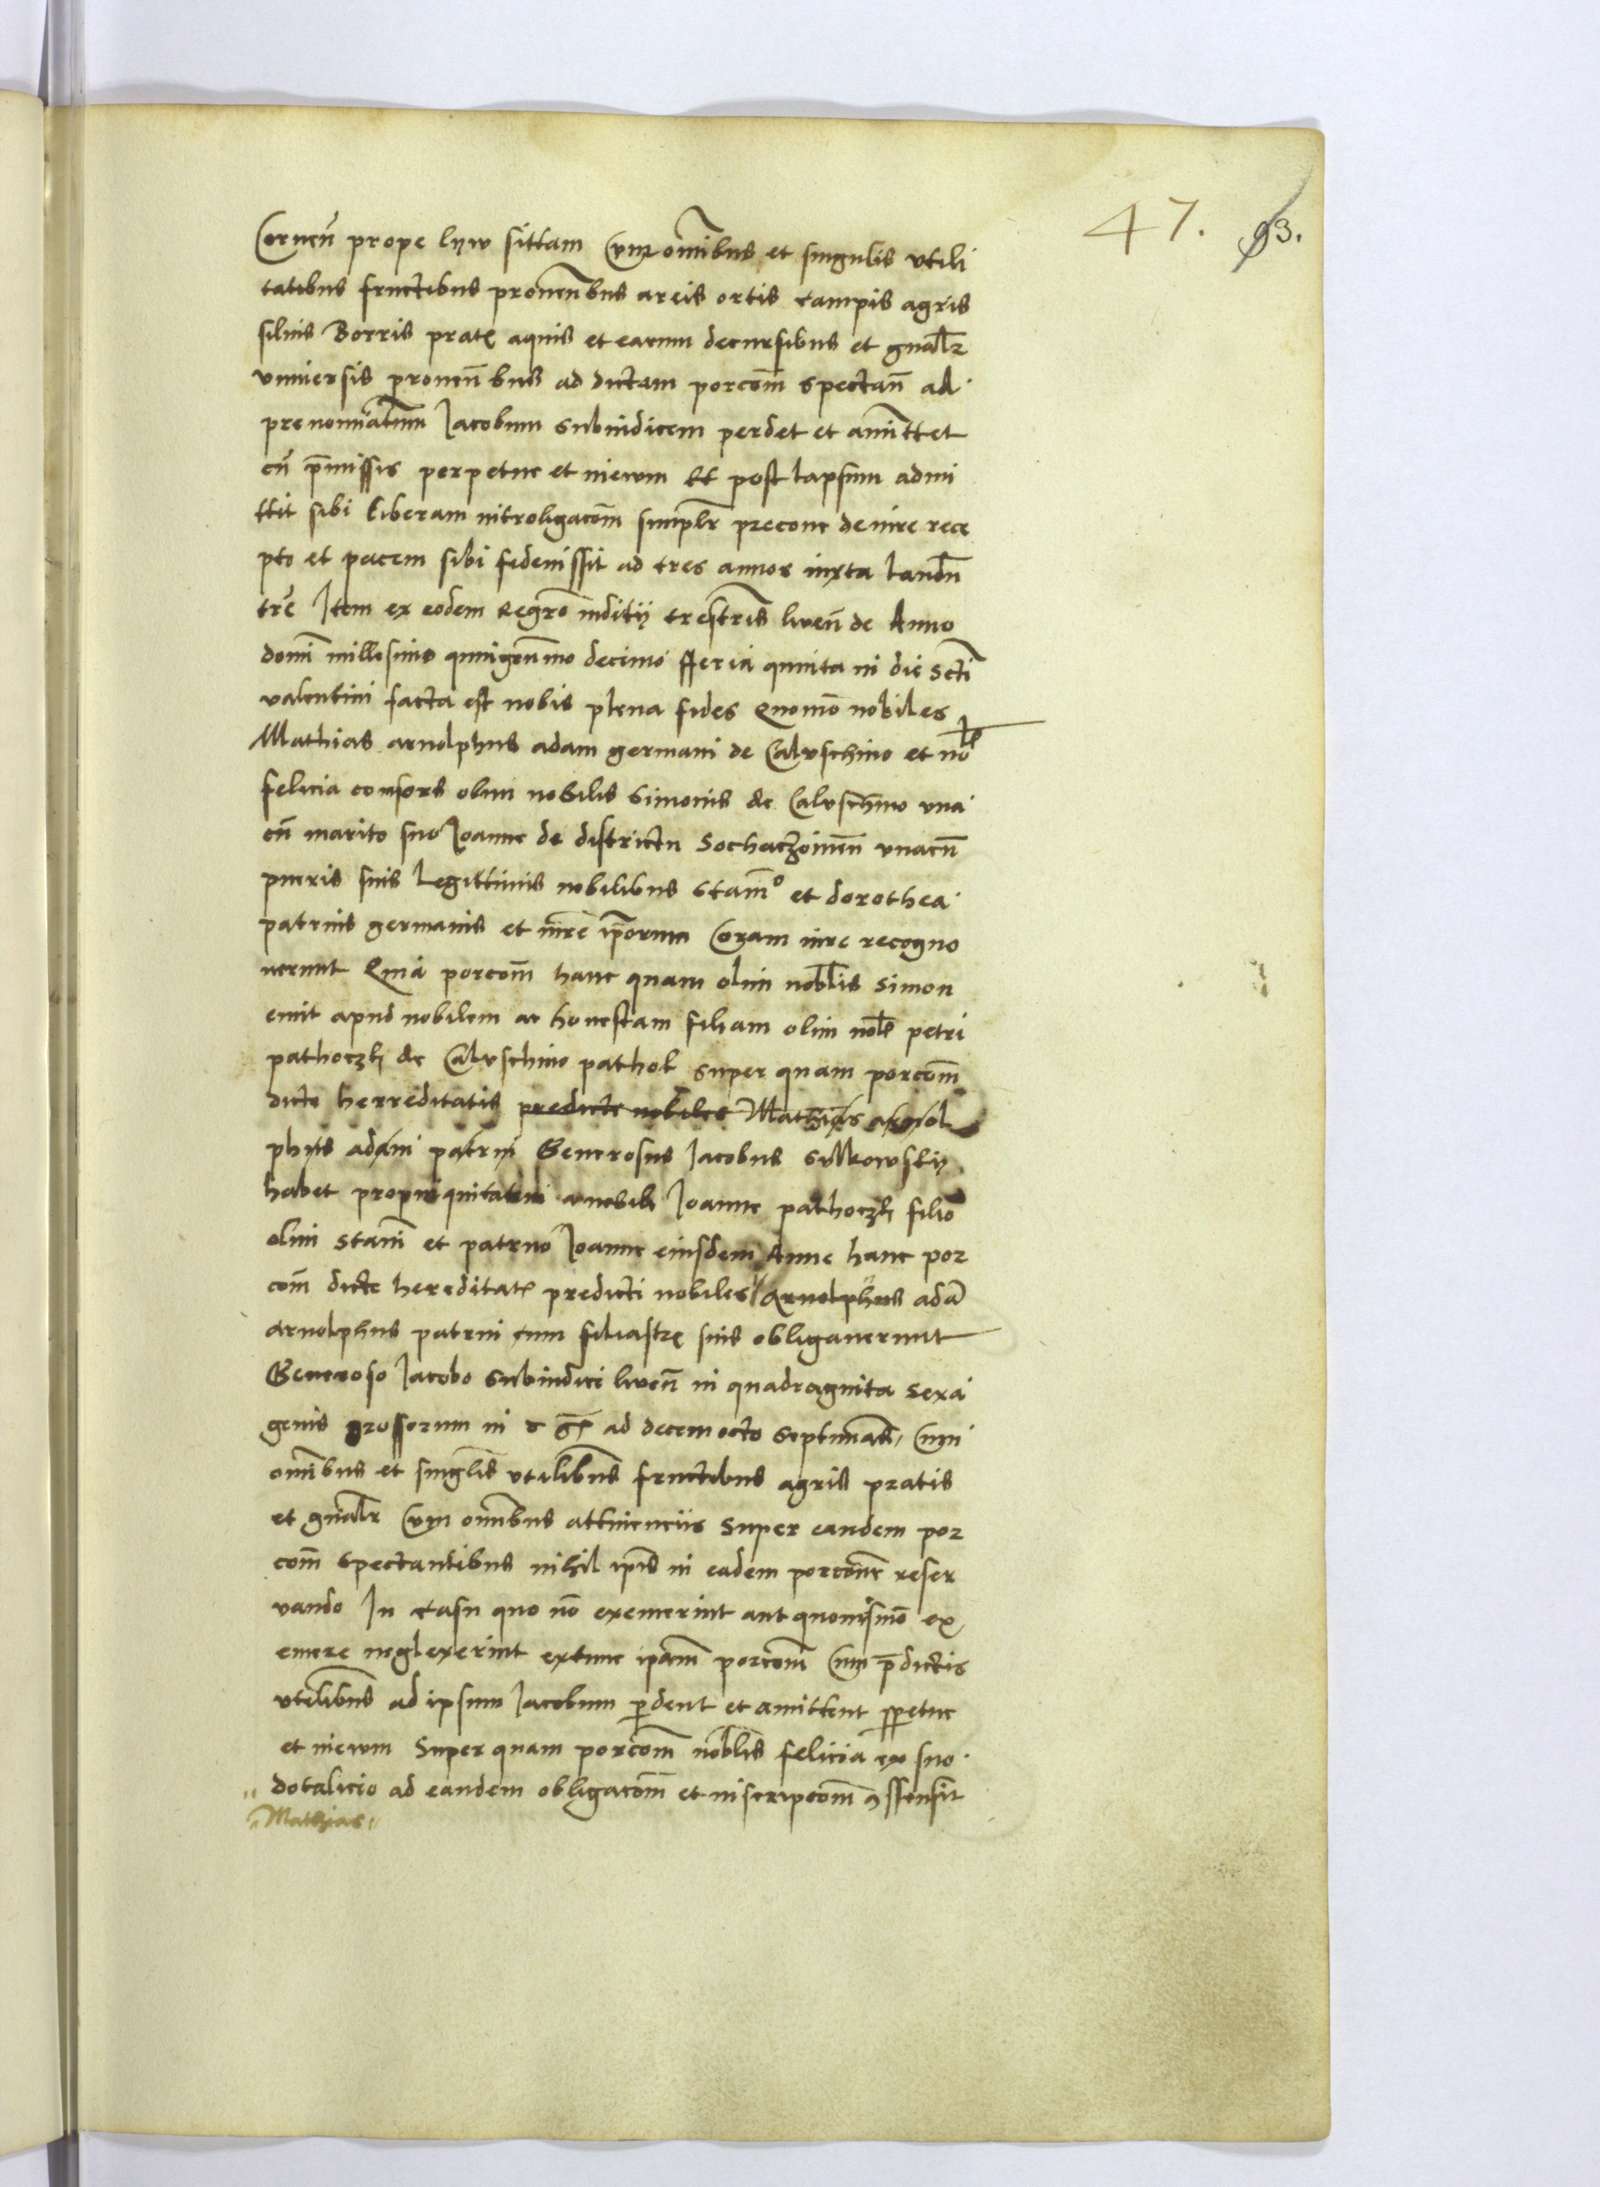 47. 93.
Czerwen̄ prope lyw sittam Cum om̄ibus et singulis vtili
tatibus fructibus prouen̄tibus areis ortis campis agris
siluis Borris prat aquis et earum decursibus et gn̄alr
vniuersis prouen̄bus ad dictam porcōm spectan̄ ad
prenomiatum Jacobum subiudicem perdet et amittet
cū p̄missis perpetue et in ewm Et post lapsum admi
ttit sibi liberam intrōligacōm simplr precone de iure rece
pto et pacem sibi fedeiussit ad tres annos iuxta laudu
trē Item ex eodem Regrō iuditij trestris liwen̄ de Anno
domi millesimo quingenmo decimo fferia quinta in die Scti
valentini facta est nobis plena fides Quomō nobiles
Mathias arnolphus adam germani de Caluschino et nol
felicia consors olim nobilis Simonis de Caluschino vna
cū marito suo Joanne de districtu Sochaczouien̄ vnacū
pueris suis legittimis nobilibus Stamo et dorothea
patruis germanis et mr̄e ip̄orum Coram iure recogno
uerunt Quia porcōm hanc quam olim noblis Simon
emit apud nobilem ac honestam filiam olim nobl petri
pathoczk de Caluschino pathok super quam porcōm
dicte herreditatis predicte nobiles Mathias arnol
phus adam patrui Generosus Jacobus Sulkowskij
habet propinquitatem a nobili Joanne pathoczk filio
olim Stani et patruo Joanne eiusdem Anne hanc por
cōm dicte hereditat predicti nobiles Arnolphus adā
Arnolphus patrui cum filiastr suis obligauerunt
Generoso Jacobo Subiudici liwen̄ in quadraginta sexa
genis grossorum in ad decemocto septimans Cum
om̄ibus et singlis vtilibus fructibus agris pratis
et gn̄alr Cum om̄ibus attinenciis Super eandem por
cōm spectantibus nihil ip̄is in eadem porcōne reser
vando In casu quo nō exemerint aut quouismō ex
emere neglexerint extunc ip̄am porcōm Cum p̄dictis
vtilibus ad ipsum Jacobum pdent et amittent ppetue
et in ewm Super quam porcōm noblis felicia ex suo
dotalicio ad eandem obligacōm et inscripcōm 9ssensit
"Mathias"